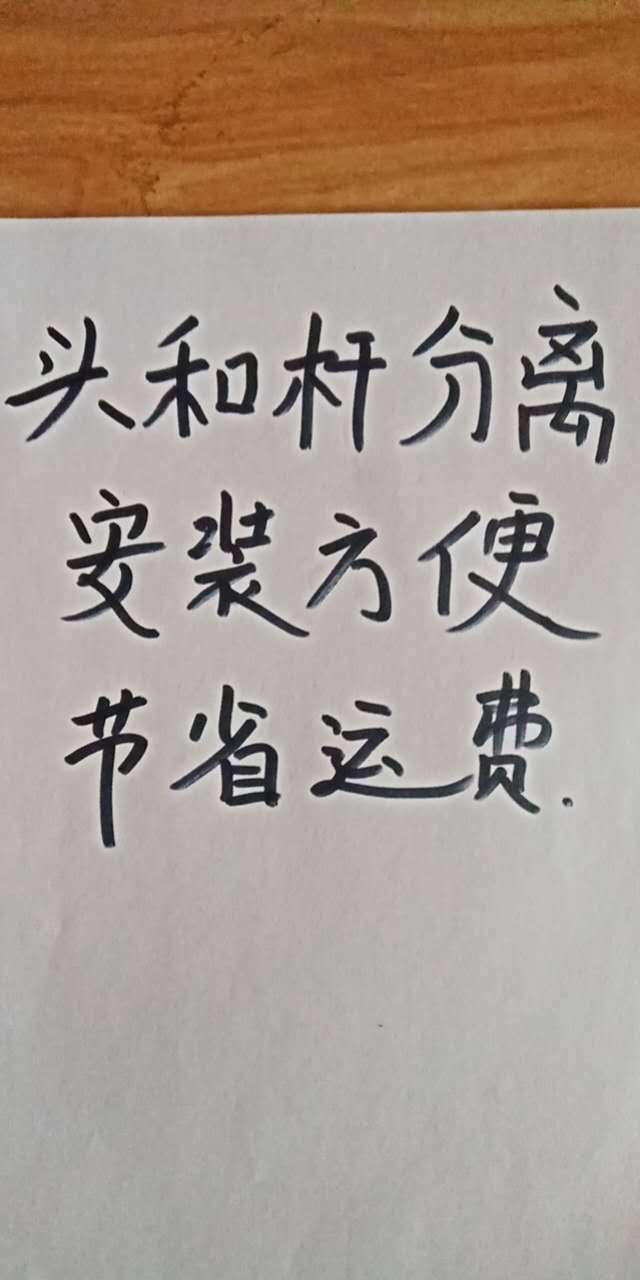 头和杆分离
安装方便
节省运费.